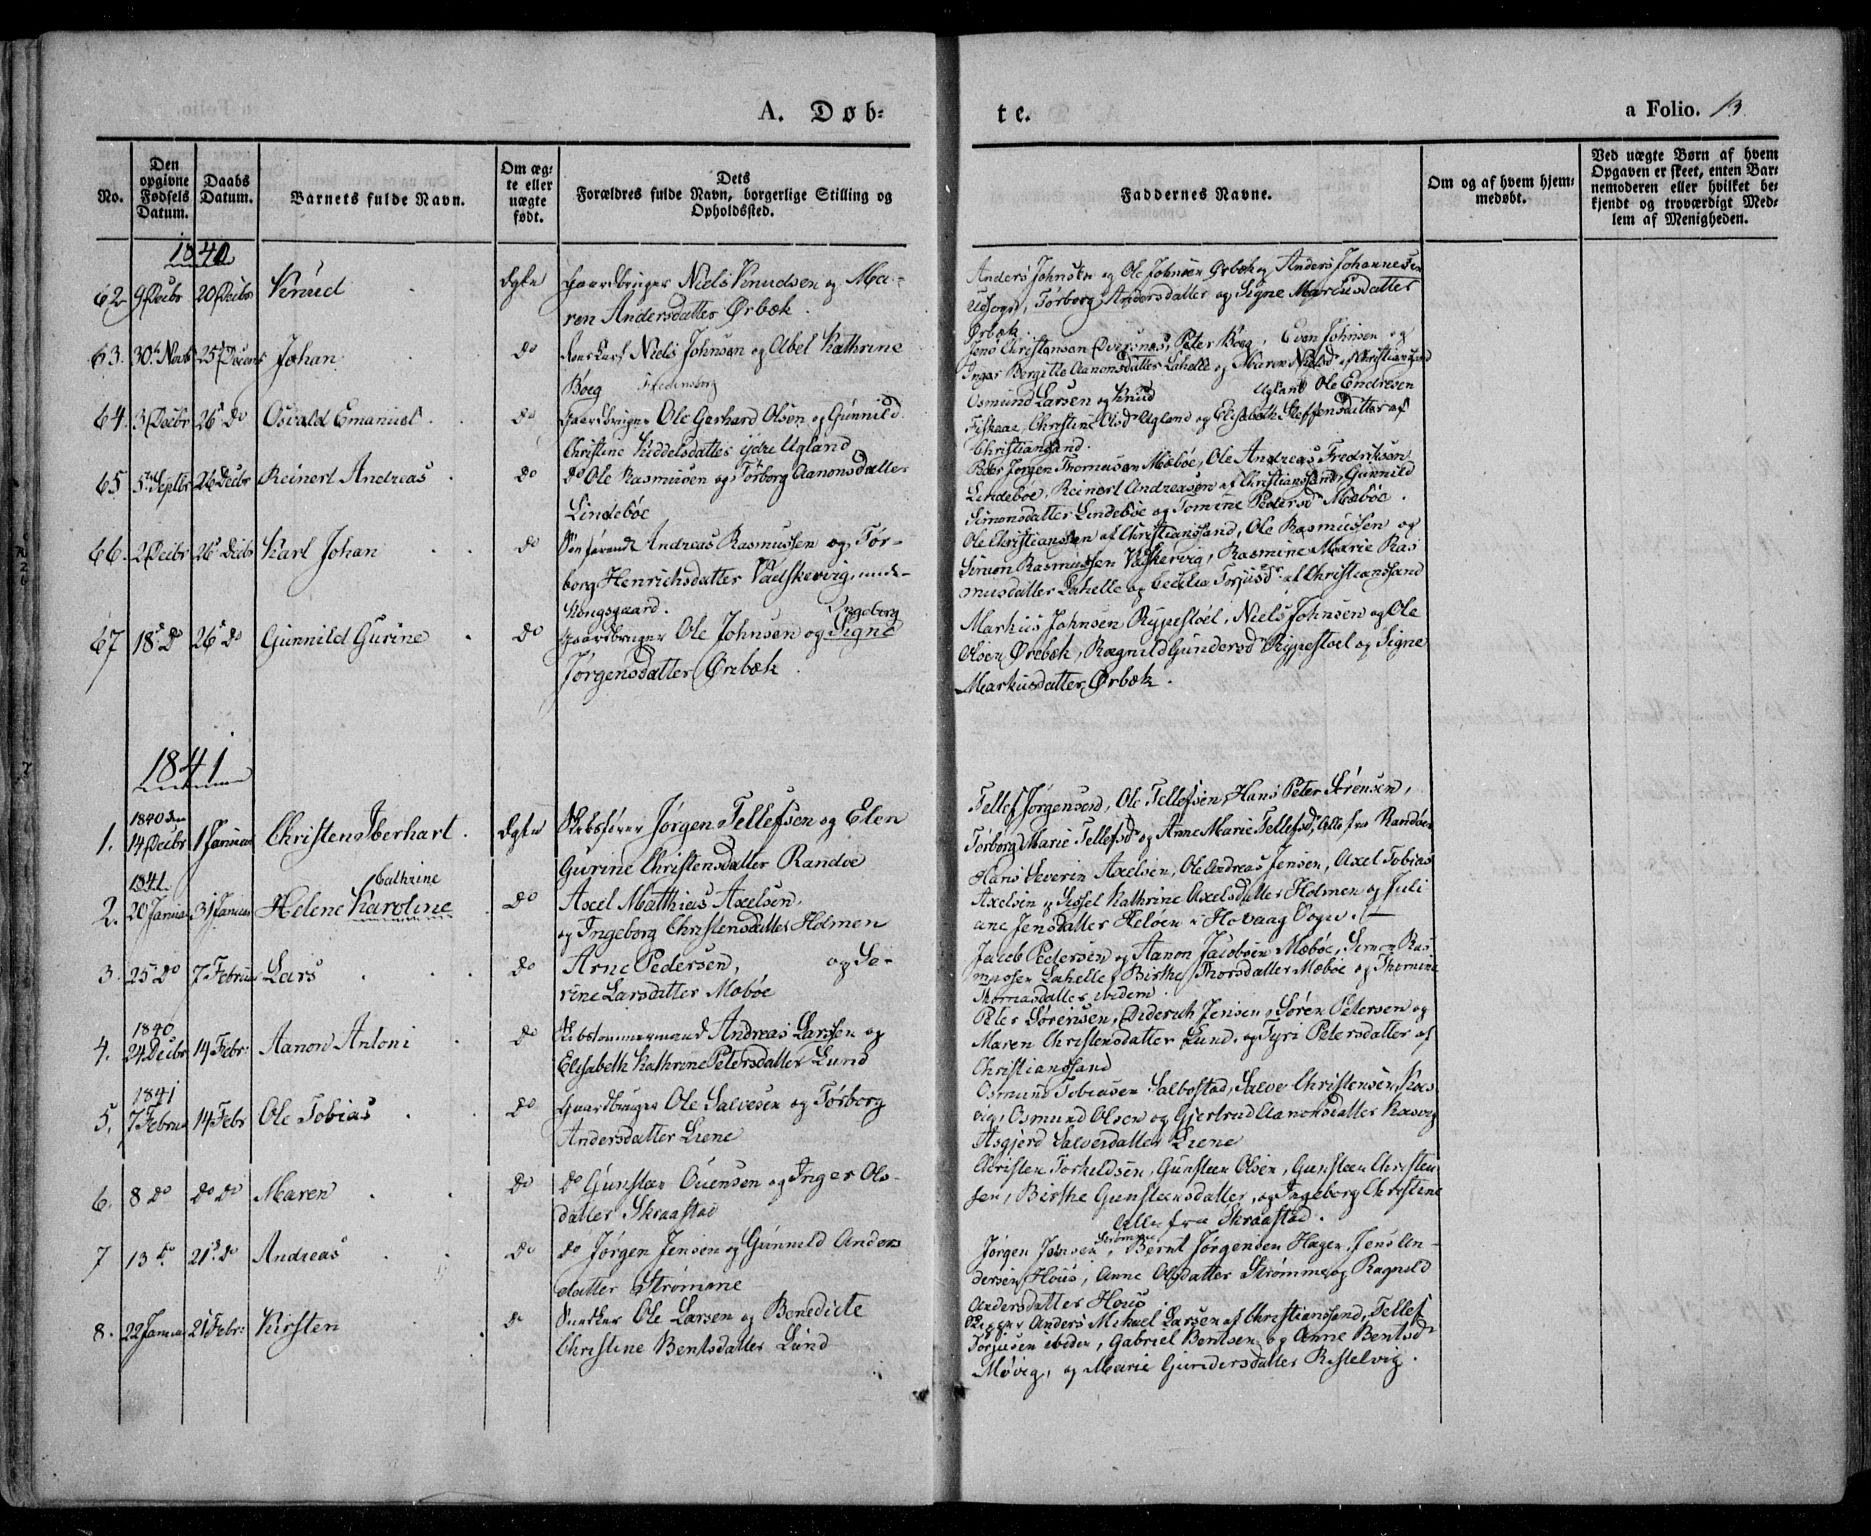 A. Døb-
te.
a Folio. 13
No.
Den opgivne Fødsels Datum.
Daabs Datum.
Barnets fulde Navn.
Om ægte eller uægte født.
Dets Forældres fulde Navn, borgerlige Stilling og Opholdssted.
Faddernes Navne.
Om og af hvem hjemmedøbt.
Ved uægte Børn af hvem Opgaven er skeet, enten Barnemoderen eller hvilket bekjendt og troværdigt Medlem af Menigheden.
1840
62 9 Decbr 20 Decbr Knud Ægte Gaardbruger Niels Knudsen og Ma-
ren Andersdatter Ørbæk.
Anders Johnsen og Ole Johnsen Ørbæk og Anders Johannesen
Torborg Andersdatter og Signe Marcusdatter
Ørbæk.
63. 30te Novb 25de Decem Johan do Niels Johnsen og Abel Kathrine
Boeg Fredensborg
Jens Christensen Dversnes, Peter Boeg, Even Johnsen og
Inger Bergitte Aanonsdatter Lahelle og Maren Nielsd af Christiansand
64. 3 Decbr 26de do Osvald Emanuel do Gaardbruger Ole Gerhard Olsen og Gunnild
Christine Kiddelsdatter ydre Ugland
Osmund Larsen og Knud Ugland Ole Endresen
Fiskaae, Christine Olsdr Ugland og Elisabeth Steffensdatter af
Christiansand.
65 5te Septbr 26 Decbr Reinert Andreas do do Ole Rasmusen og Torborg Aanonsdatter
Lindebøe
Peder Jørgen Thomassen Mæbøe, Ole Andreas Fredriksen
Lindebøe, Reinert Andreasen af Christianssand, Gunnild
Simonsdatter Lindebøe og Tomine Pedersdr Mæbøe.
66. 2 Decbr 26de Decb Karl Johan do Andreas Rasmussen og Tor-
borg Henrichsdatter Vadskervig, unde-
Kongsgaard.
Ole Christianssen af Christianssand, Ole Rasmussen og
Simon Rasmussen Vaskervig, Rasmine Marie Ras
musdatter Lahelle og Cecilia Torjusdr af Christianssand
67 18de do 26de do Gunnild Gurine do Gaardbruger Ole Johnsen og Signe Ingeborg
Jørgensdatter Ørebæk.
Markus Johnsen Rypestøel, Niels Johnsen og Ole
Olsen Ørebæk, Ragnild Gundersd Rypestøel og Signe
Markusdatter Ørbæk.
1841
1. 1840 den 14 Decbr 1 Januar Christen Iberhart. Ægte Skibsfører Jørgen Tellefsen og Elen
Gurine Christensdatter Randøe
Tellef Jørgensen, Ole Tellefsen, Hans Peter Sørensen,
Torborg Marie Tellefsdr og Anne Marie Tellefsd, Alle fra Randøen
2. 1841. 20 Januar 31 Januar Helene Karoline Cathrine do Axel Matthias Axelsen,
og Ingeborg Christensdatter Holmen
Hans Severin Axelsen, Ole Andreas Jensen, Axel Tobias
Axelsen og Sissel Kathrine Axelsdatter Holmen og Juli
ane Jensdatter Heløen i Høvaag Sogn.
3. 25 do 7 Februar Lars do Arne Pedersen, og Se-
rine Larsdatter Mæbøe
Jacob Pedersen og Aanon Jacobsen Mæbøe, Simon Ras
mussen Lahelle, Birthe Thorsdatter Mæbøe og Thomine
Thomasdatter ibidem.
4. 1840 24 Decbr 14 Febr: Aanon Antoni do Skibstømmermand Andreas Larssen og
Elisabeth Kathrine Petersdatter Lund
Peter Sørensen, Diderich Jensen, Søren Petersen og
Maren Christensdatter Lund. og Tyri Petersdatter af
Christianssand
5. 1841 7 Februar 14 Febr Ole Tobias do Gaardbruger Ole Salvesen og Torborg
Andersdatter Liene
Osmund Tobiasen Salbostad, Salve Christensen Kos
vig, Osmund Olsen og Gjertrud Aanonsdatter Kosvig
Asgjerd Salvesdatter Liene
6. 8 do do do Maren do do Gunsten Evensen og Inger Ols-
datter Skraastad
Christen Torkildsen, Gunsteen Olsen, Gunsteen Christen
sen, Birthe Gunsteensdatter, og Ingeborg Christine
Alle fra Skraastad.
7 13 do. 21de do Andreas do do Jørgen Jensen og Gunnild Anders
datter Strømme
Jørgen Jensen Strømme, Bernt Jørgensen Hagen, Jens An-
dersen Hous, Anne Olsdatter Strømme og Ragnild
Andersdatter Hous
8. 22 Januar 21 Febr: Kirsten do Ole Larsen og Benedicte
Christine Bentsdatter Lund
Skipper Anders Michael Larsen af Christianssand, Tellef
Torjusen ibidem, Gabriel Bentsen og Anne Bentsdr
Møvig, og Marie Gundersdatter Ristelvig.